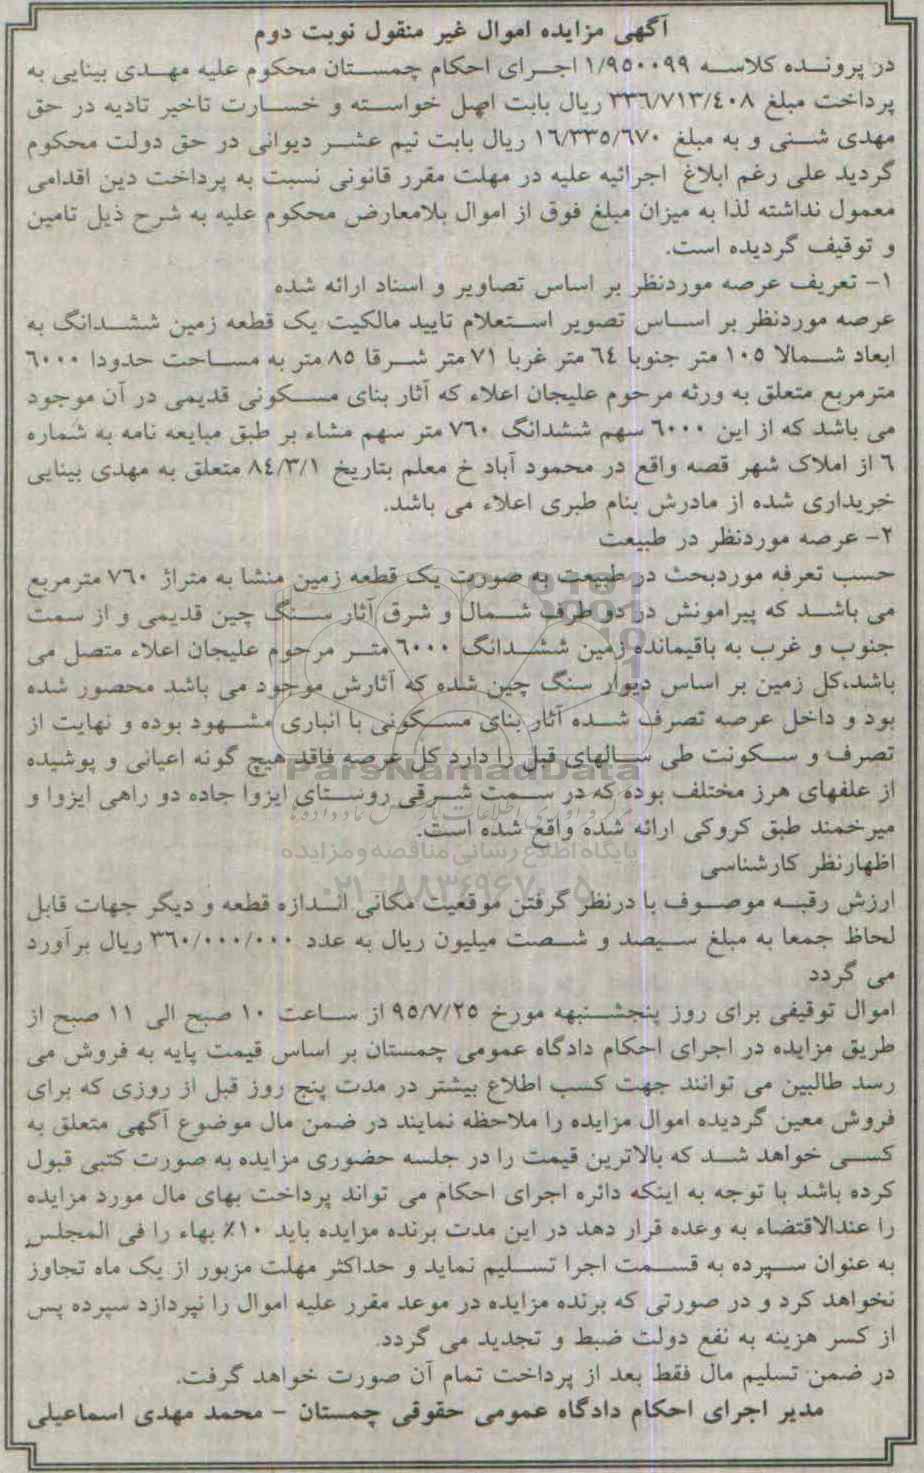 آگهی مزایده اموال غیر منقول نوبت دوم
در پرونده کلاسه ۱/۹۵۰۰۹۹ اجرای احکام چمستان محکوم علیه مهدی بینایی به
پرداخت مبلغ ۳۳۶/۷۱۳/۴۰۸ ریال بابت اصل خواسته و خسارت تاخیر تادیه در حق
مهدی شنی و به مبلغ ۱۶/۳۳۵/۶۷۰ ریال بابت نیم عشر دیوانی در حق دولت محکوم
گردید علی رغم ابلاغ اجرائیه علیه در مهلت مقرر قانونی نسبت به پرداخت دین اقدامی
معمول نداشته لذا به میزان مبلغ فوق از اموال بلامعارض محکوم علیه به شرح ذیل تامین
و توقیف گردیده است.
۱- تعریف عرصه موردنظر بر اساس تصاویر و اسناد ارائه شده
عرصه موردنظر بر اساس تصویر استعلام تایید مالکیت یک قطعه زمین ششدانگ به
ابعاد شمالا ۱۰۵ متر جنوبا ٦٤ متر غربا ۷۱ متر شرقا ۸۵ متر به مساحت حدودا ۶۰۰۰
مترمربع متعلق به ورثه مرحوم علیجان اعلاء که آثار بنای مسکونی قدیمی در آن موجود
می باشد که از این ۶۰۰۰ سهم ششدانگ ۷۶۰ متر سهم مشاء بر طبق مبایعه نامه به شماره
۶ از املاک شهر قصه واقع در محمود آباد خ معلم بتاریخ ۸٤/۳/۱ متعلق به مهدی بینایی
خریداری شده از مادرش بنام طبری اعلاء می باشد.
۲- عرصه موردنظر در طبیعت
حسب تعرفه موردبحث در طبیعت به صورت یک قطعه زمین منشا به متراژ ۷۶۰ مترمربع
می باشد که پیرامونش در دو طرف شمال و شرق آثار سنگ چین قدیمی و از سمت
جنوب و غرب به باقیمانده زمین ششدانگ ۶۰۰۰ متر مرحوم علیجان اعلاء متصل می
باشد،کل زمین بر اساس دیوار سنگ چین شده که آثارش موجود می باشد محصور شده
بود و داخل عرصه تصرف شده آثار بنای مسکونی با انباری مشهود بوده و نهایت از
تصرف و سکونت طی سالهای قبل را دارد کل عرصه فاقد هیچ گونه اعیانی و پوشیده
ParsNamadData
از علفهای هرز مختلف بوده که در سمت شرقی روستای ایزوا جاده دو راهی ایزوا و
میرخمند طبق کروکی ارائه شده واقع شده است.
پایگاه اطلاع رسانی مناقصه و مزایده
اظهارنظر کارشناسی
۰۲۱-۸۸۳۴۹۶۷۰-۵
ارزش رقبه موصوف با درنظر گرفتن موقعیت مکانی اندازه قطعه و دیگر جهات قابل
لحاظ جمعا به مبلغ سیصد و شصت میلیون ریال به عدد ۳۶۰/۰۰۰/۰۰۰ ریال برآورد
می گردد
اموال توقیفی برای روز پنجشنبهه مورخ ۹۵/۷/۲۵ از ساعت ۱۰ صبح الی ۱۱ صبح از
طریق مزایده در اجرای احکام دادگاه عمومی چمستان بر اساس قیمت پایه به فروش می
رسد طالبین می توانند جهت کسب اطلاع بیشتر در مدت پنج روز قبل از روزی که برای
فروش معین گردیده اموال مزایده را ملاحظه نمایند در ضمن مال موضوع آگهی متعلق به
کسی خواهد شد که بالاترین قیمت را در جلسه حضوری مزایده به صورت کتبی قبول
کرده باشد با توجه به اینکه دائره اجرای احکام می تواند پرداخت بهای مال مورد مزایده
را عندالاقتضاء به وعده قرار دهد در این مدت برنده مزایده باید ۱۰٪ بهاء را فی المجلس
به عنوان سپرده به قسمت اجرا تسلیم نماید و حداکثر مهلت مزبور از یک ماه تجاوز
نخواهد کرد و در صورتی که برنده مزایده در موعد مقرر علیه اموال را نپردازد سپرده پس
از کسر هزینه به نفع دولت ضبط و تجدید می گردد.
در ضمن تسلیم مال فقط بعد از پرداخت تمام آن صورت خواهد گرفت.
مدیر اجرای احکام دادگاه عمومی حقوقی چمستان - محمد مهدی اسماعیلی